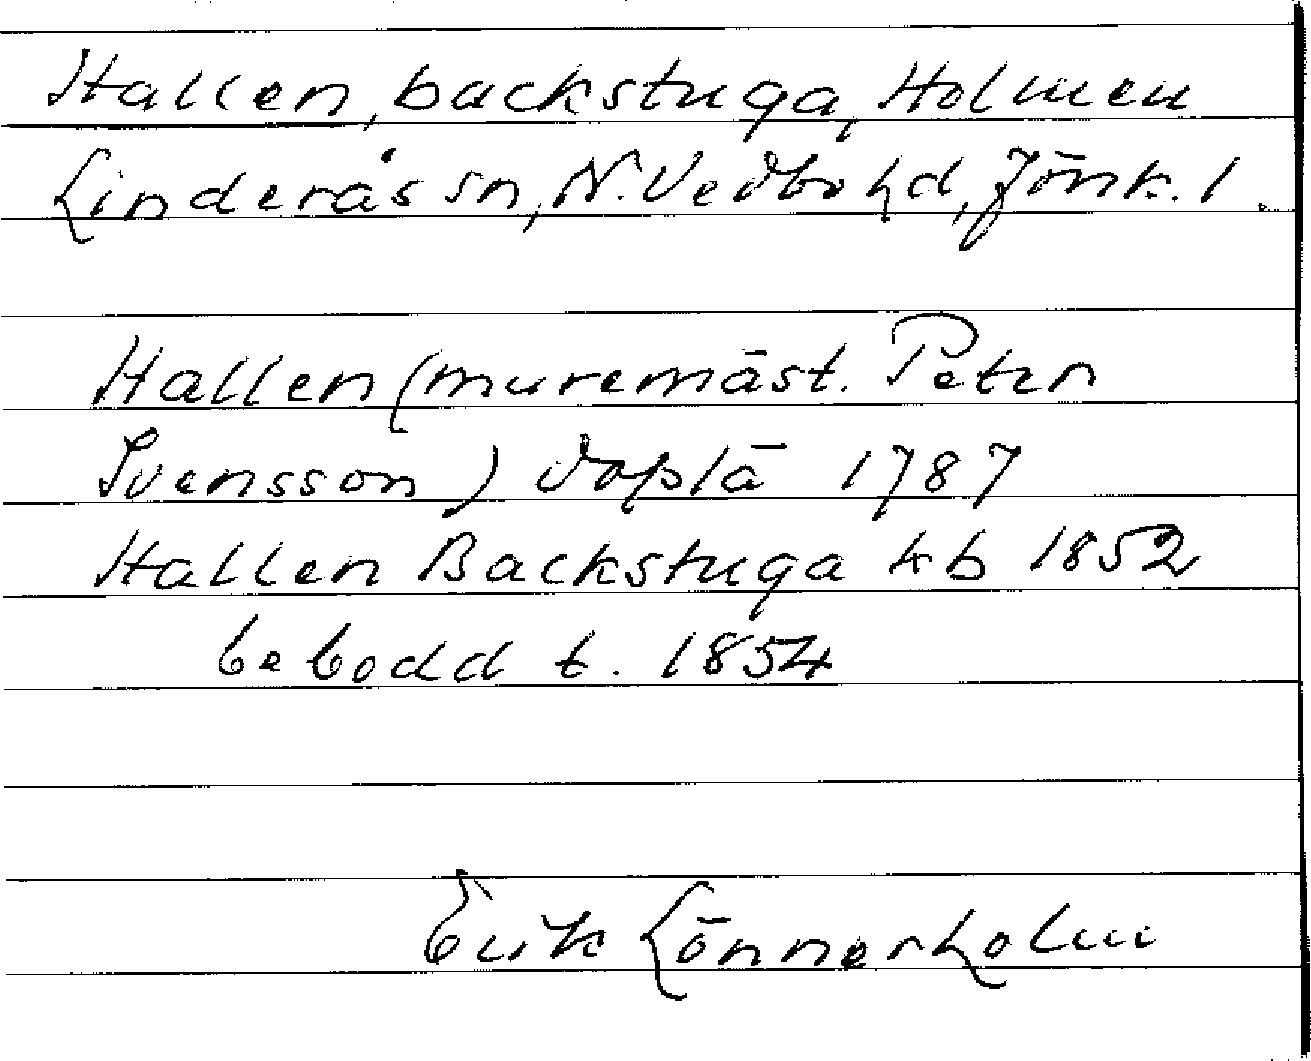 Hallen, backstuga, Holmen
Linderås sn, N. Vedbo hd, Jönk. l.
Hallen (muremäst. Peter
Svensson) doplä 1787
Hallen Backstuga kb 1852
bebodd t. 1854
Erik Lönnerholm